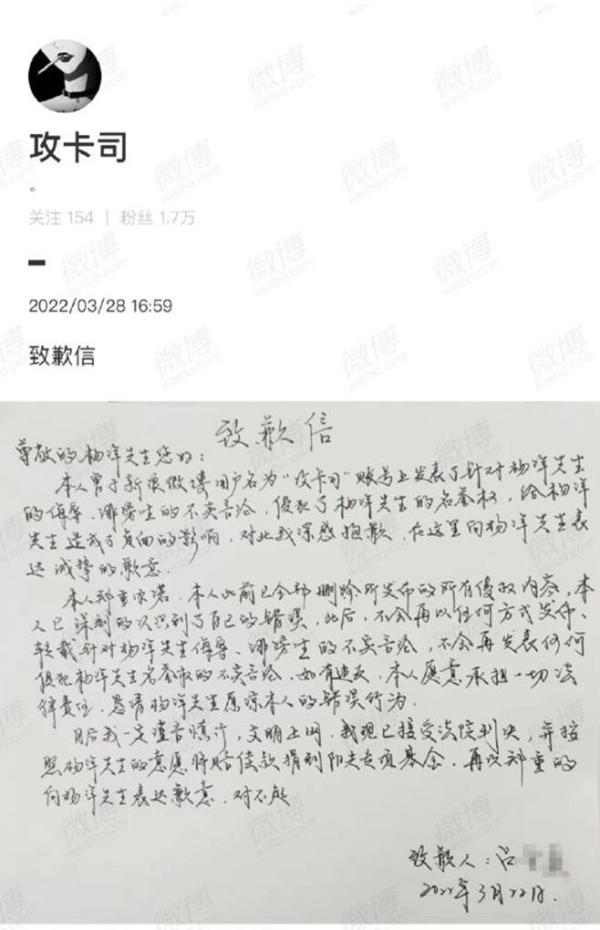 攻卡司
。
关注 154 | 粉丝 1.7万
2022/03/28 16:59
致歉信
致歉信
尊敬的杨洋先生您好：
本人曾于新浪微博用户名为“攻卡司”账号上发表了针对杨洋先生
的侮辱、诽谤性的不实言论，侵犯了杨洋先生的名誉权，给杨洋
先生造成了负面的影响，对此我深感抱歉，在这里向杨洋先生表
达诚挚的歉意。
本人郑重承诺：本人此前已全部删除所发布的所有侵权内容，本
人已深刻的认识到了自己的错误，此后，不会再以任何方式发布、
转载针对杨洋先生侮辱、诽谤性的不实言论，不会再发表任何
侵犯杨洋先生名誉权的不实言论，如有违反，本人愿意承担一切法
律责任。恳请杨洋先生原谅本人的错误行为。
日后我一定谨言慎行，文明上网。我现已接受法院判决，并按
照杨洋先生的意愿将赔偿款捐到阳光专项基金。再次郑重的
向杨洋先生表达歉意，对不起
致歉人：吕
2022年3月22日.
微博
weibo.com